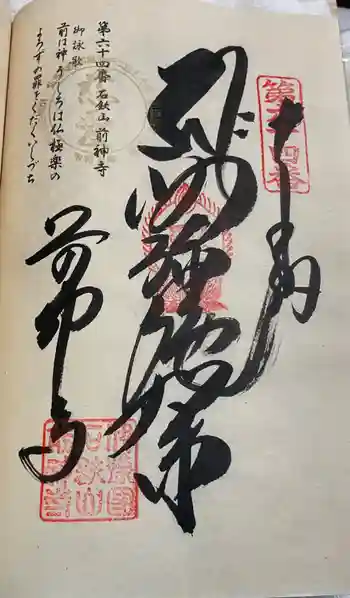 奉納
第六十四番
阿弥陀如来
第六十四番 石鈇山 前神寺
御詠歌
前は神うしろは仏極楽の
よろずの罪をくだくいしづち
前神寺
伊豫国
石鈇山
前神寺